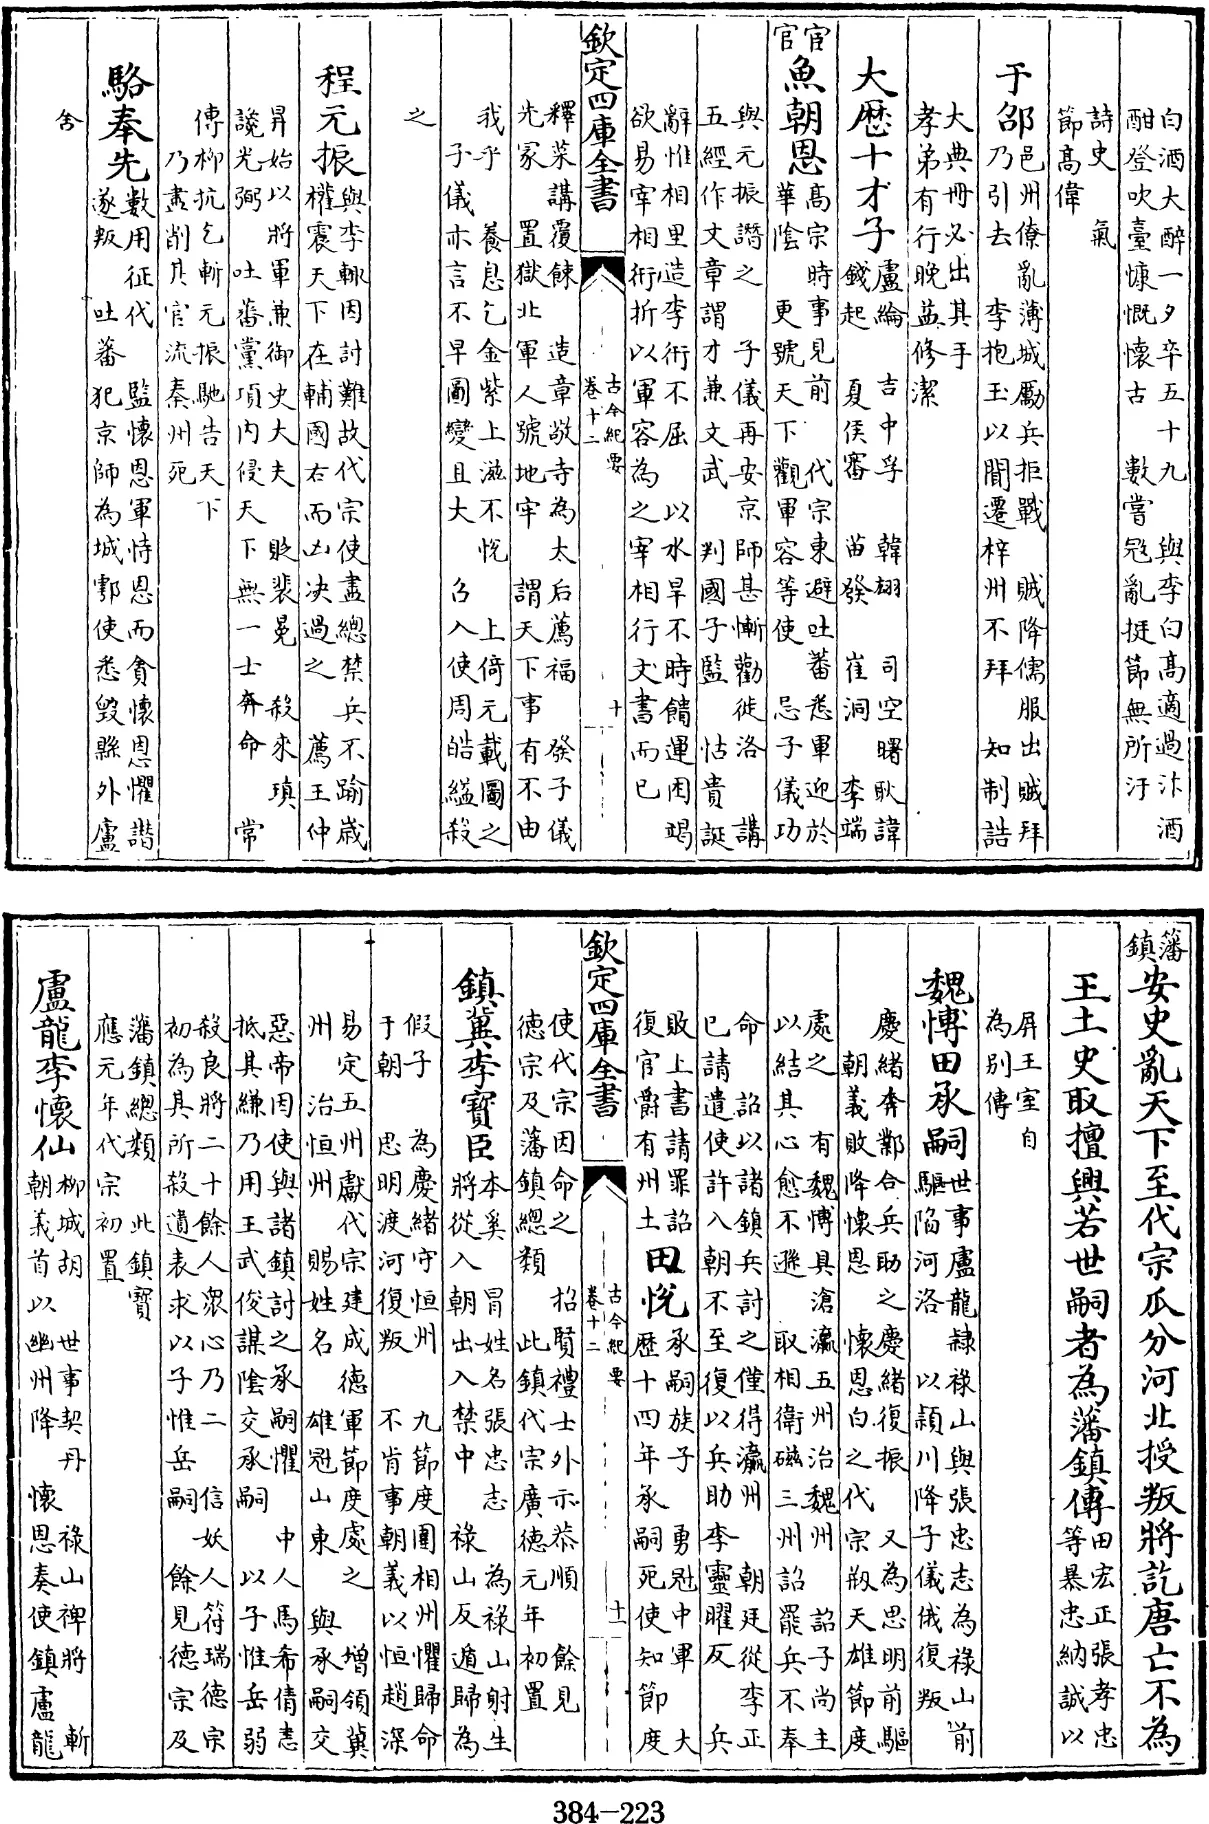 白酒大醉一夕卒五十九　與李白高適過汴酒
酣登吹臺慷慨懷古　數嘗冦亂挺節無所汙
詩史　氣
節高偉
于邵邑州僚亂薄城勵兵拒戰　賊降儒服出賊拜
乃引去　李抱玉以聞遷梓州不拜　知制誥
大典冊必出其手
孝弟有行晚益修潔
大歴十才子盧綸　吉中孚　韓翃　司空曙耿諱
錢起　夏侯審　苗發　崔洞　李端
宦官
魚朝恩高宗時事見前　代宗東避吐蕃悉軍迎於
華陰　更號天下觀軍容等使　忌子儀功
與元振譖之　子儀再安京師甚慚勸徙洛　講
五經作文章謂才兼文武　判國子監　怙貴誕
辭惟相里造李衎不屈　以水旱不時饋運困竭
欲易宰相衎折以軍容為之宰相行文書而已
欽定四庫全書
古今紀要
卷十二
十
釋菜講覆餗　造章敬寺為太后薦福　發子儀
先冡　置獄北軍人號地牢　謂天下事有不由
我乎　養息乞金紫上滋不悦　上倚元載圖之
子儀亦言不早圖變且大　召入使周皓縊殺
之
程元振與李輔因討難故代宗使盡總禁兵不踰歲
權震天下在輔國右而凶决過之　薦王仲
昇始以將軍兼御史大夫　貶裴冕　殺來瑱
䜛光弼　吐蕃黨項内侵天下無一士奔命　常
傅柳抗乞斬元振馳告天下
乃盡削其官流秦州死
駱奉先數用征代　監懷恩軍恃恩而貪懷恩懼譖
遂叛　吐蕃犯京師為城鄠使悉毀縣外廬
舍
藩鎮
安史亂天下至代宗瓜分河北授叛將訖唐亡不為
王土史取擅興若世嗣者為藩鎮傳田宏正張孝忠
等暴忠納誠以
屏王室自
為別傳
魏愽田承嗣世事盧龍隸祿山與張忠志為祿山前
驅陷河洛　以潁川降子儀俄復叛
慶緒奔鄴合兵助之慶緒復振　又為思明前驅
朝義敗降懷恩　懷恩白之代宗拜天雄節度
處之　有魏愽具滄瀛五州治魏州　詔子尚主
以結其心愈不遜　取相衛磁三州詔罷兵不奉
命　詔以諸鎮兵討之僅得瀛州　朝廷從李正
已請遣使許入朝不至復以兵助李靈曜反　兵
敗上書請罪詔　田悅承嗣族子　勇冠中軍　大
復官爵有州土　歴十四年承嗣死使知節度
欽定四庫全書
古今紀要
卷十二
十一
使代宗因命之　招賢禮士外示恭順　餘見
德宗及藩鎮總類　此鎮代宗廣德元年初置
鎮冀李寶臣本奚　冒姓名張忠志　為祿山射生
將從入朝出入禁中　祿山反遁歸為
假子　為慶緒守恒州　九節度圍相州懼歸命
于朝　思明渡河復叛　不肯事朝義以恒趙深
易定五州獻代宗建成德軍節度處之　增領冀
州　治恒州　賜姓名　雄冠山東　與承嗣交
惡帝因使與諸鎮討之承嗣懼　中人馬希倩恚
抵其縑乃用王武俊謀陰交承嗣　以子惟岳弱
殺良將二十餘人衆心乃二　信妖人符瑞德宗
初為其所殺遺表求以子惟岳嗣　餘見德宗及
藩鎮總類　此鎮寶
應元年代宗初置
盧龍李懷仙柳城胡　世事契丹　祿山裨將　斬
朝義首以幽州降　懷恩奏使鎮盧龍
384—223